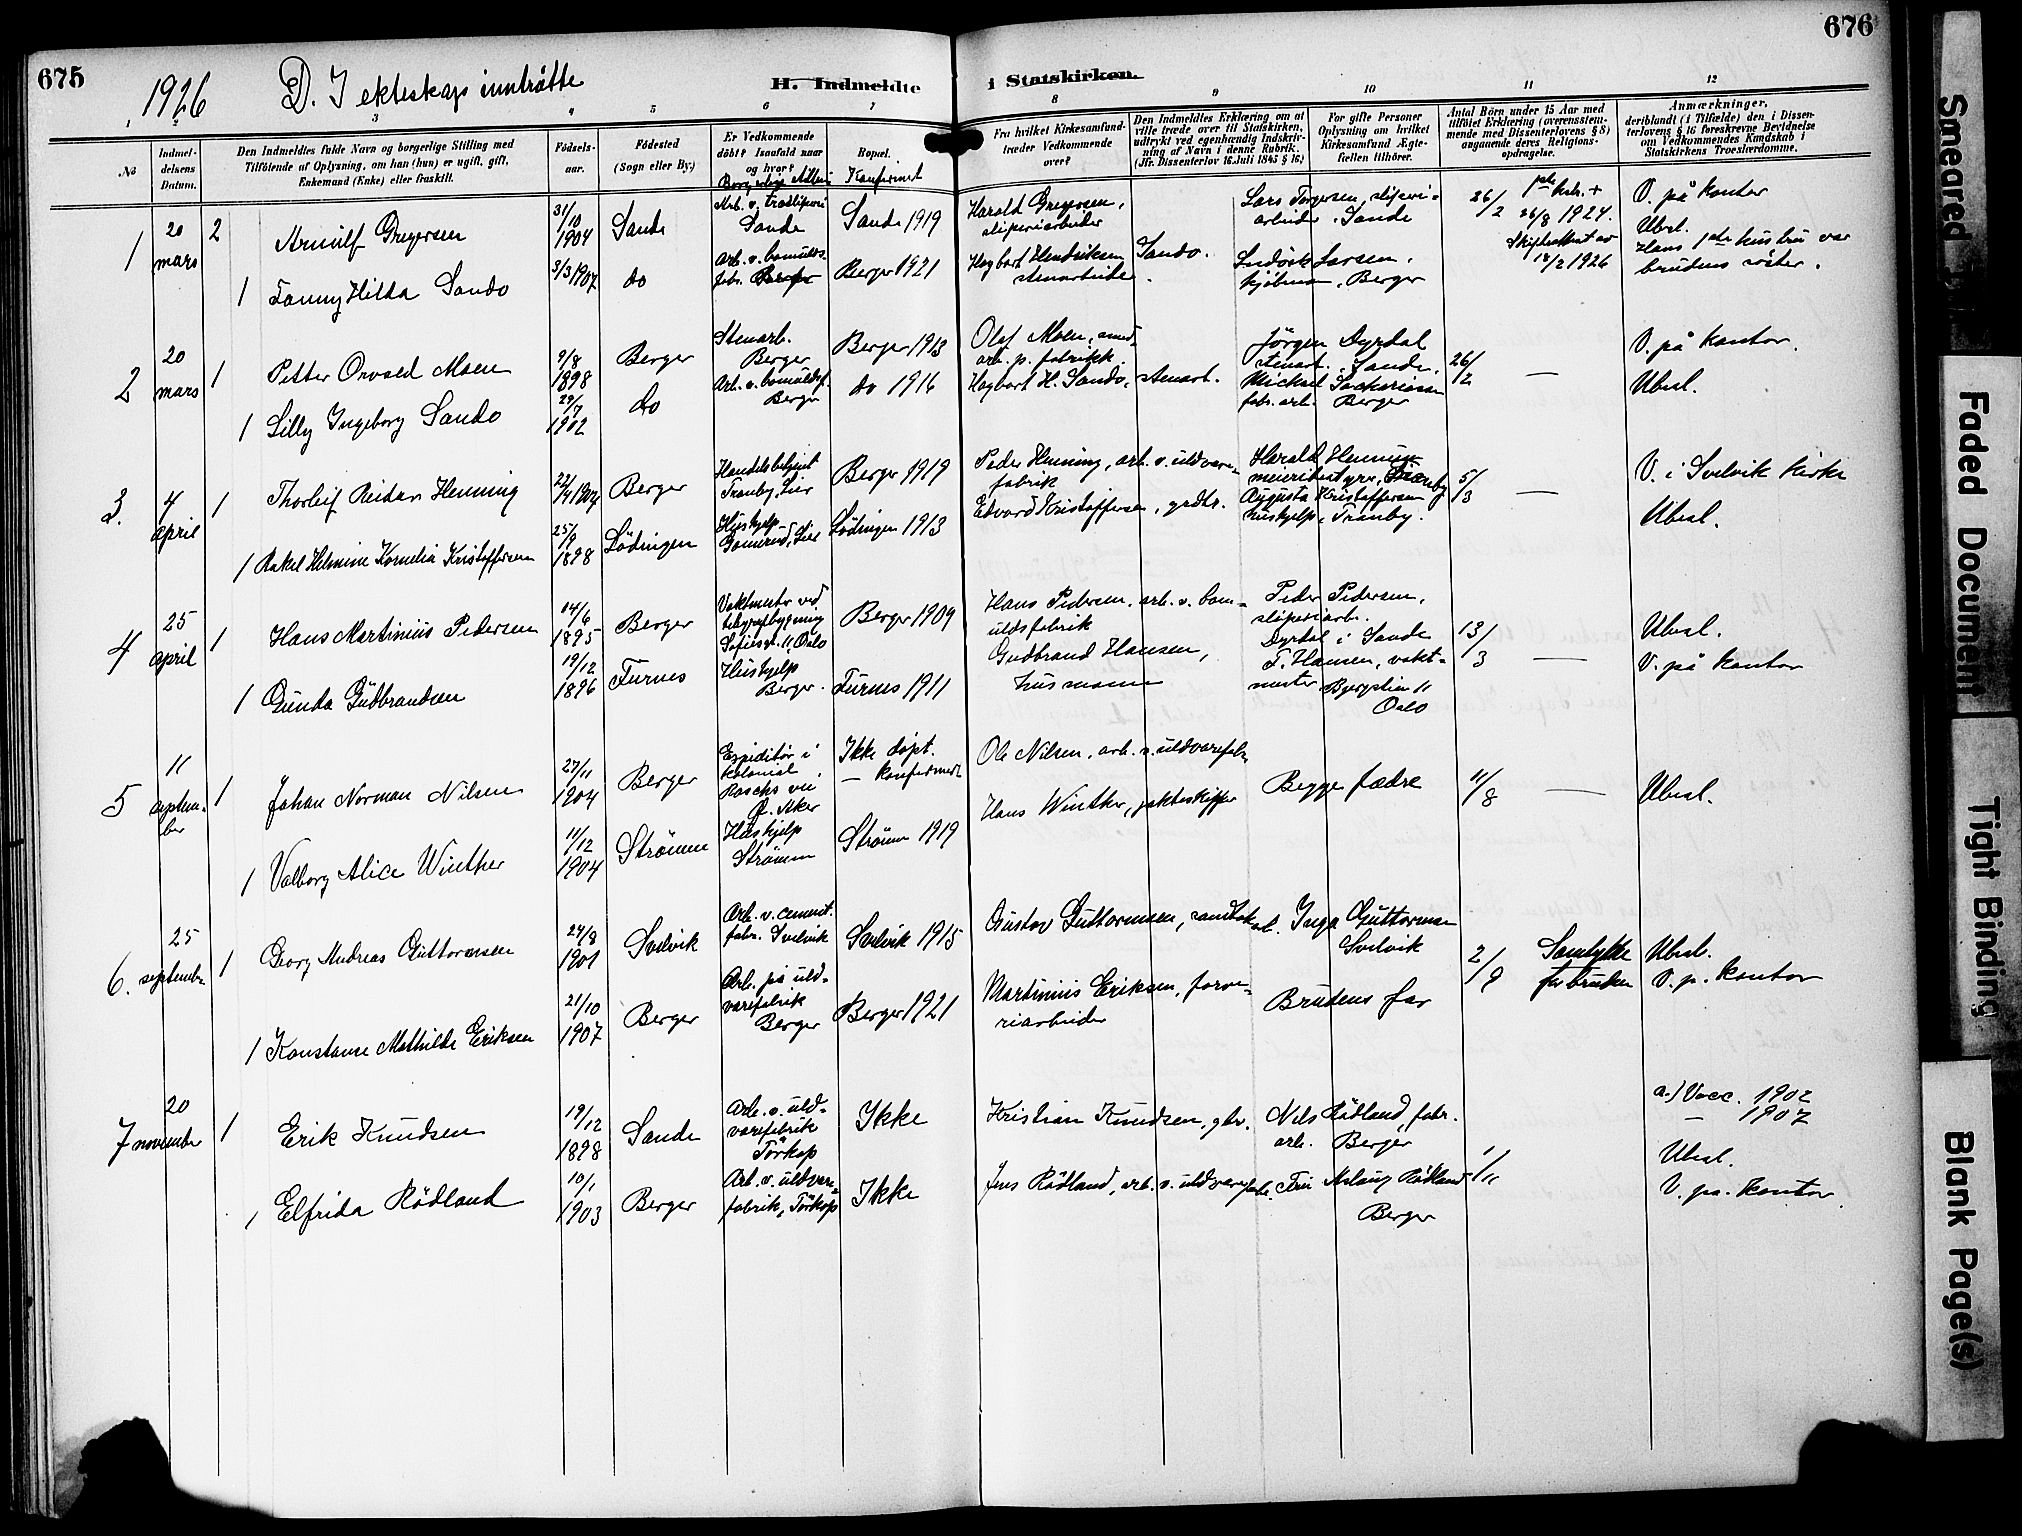 675
676
1926 D. I ekteskap inntrådte
H. Indmeldte i Statskirken.
1 2 3 4 5 6 7 8 9 10 11 12
No
Indmel-
delsens
Datum.
Den Indmeldtes fulde Navn og borgerlige Stilling med
Tilföiende af Oplysning, om han (hun) er ugift, gift,
Enkemand (Enke) eller fraskilt.
Födsels-
aar.
Födested
(Sogn eller By.)
Er Vedkommende
döbt? Isaafald naar
og hvor?
Borgerlige stilling
Bopæl.
Konfirmert
Fra hvilket Kirkesamfund
træder Vedkommende
over?
Den Indmeldtes Erklæring om at
ville træde over til Statskirken,
udtrykt ved egenhændig Indskriv-
ning af Navn i denne Rubrik.
(Jfr. Dissenterlov 16 Juli 1845 § 16.)
For gifte Personer
Oplysning om hvilket
Kirkesamfund Ægte-
fællen tilhörer.
Antal Börn under 15 Aar med
tilföiet Erklæring (overensstem-
mende med Dissenterlovens § 8)
angaaende deres Religions-
opdragelse.
Anmærkninger,
deriblandt (i Tilfælde) den i Dissen-
terlovens § 16 foreskrevne Bevidnelse
om Vedkommendes Kundskab i
Statskirkens Troeslærdomme.
1 20 mars 2 Arnulf Gregersen 31/10 1904 Sande
Arb. v. træsliperi
Sande
Sande 1919
Harald Gregersen,
sliperiarbeider
Lars Torgersen, sliperi-
arbeider, Sande
26/2
1ste hstr. +
26/8 1924.
Skifteattest av
18/2 1926
V. på kontor
Ubesl.
Hans 1ste hustru var
brudens søster.
1 Fanny Hilda Sando 3/3 1907 do
Arb. v. bomulds-
fabr. Berger
Berger 1921
Hagbart Hendriksen Sando.
stenarbeider
Ludvik Larsen,
kjøbman, Berger
2 20 mars 1 Petter Orvald Moen 9/8 1898 Berger
Stenarb.
Berger
Berger 1913
Olaf Moen, smed-
arb. p. fabrikk
Jörgen Dyrdal
stenarb., Sande.
26/2 —
V. på kontor.
Ubesl.
1 Lilly Ingeborg Sando 29/7 1902 do
Arb. v. bomuldsf.
Berger
do 1916
Hagbart H. Sando, stenarb.
Mickael Sackariassen
fabr. arb. Berger
3. 4 april 1 Thorleif Reidar Henning 22/4 1904 Berger
Handelsbetjent
Tranby, Lier
Berger 1919
Peder Henning, arb. v. uldvare-
fabrik
Harald Henning
meieribestyrer, Tranby
5/3 —
V. i Svelvik kirke
Ubesl.
1 Rakel Helmine Kornelia Kristoffersen 25/9 1898 Lödingen
Huskjelp
Gomerud, Lier
Lödingen 1913
Edvard Kristoffersen, grdbr.
Augusta Kristoffersen
huskjelp, Tranby.
4 25 april 1 Hans Martinius Pedersen 14/6 1895 Berger
Vaktmester ved
telegrafbygning
Sofies v. 11, Oslo
Berger 1909
Hans Pedersen, arb. v. bom-
uldsfabrik
Peder Pedersen,
sliperiarb.
Dyrdal i Sande
13/3 —
Ubesl.
V. på kontor
1 Gunda Gudbrandsen 19/12 1896 Furnes
Huskjelp
Berger.
Furnes 1911
Gudbrand Hansen,
husmann
F. Hansen, vakt-
mester, Bjergstien 11
Oslo
5 11 september 1 Johan Norman Nilsen 27/11 1904 Berger
Expeditør i
kolonial
Raschs vei
Ø. Aker
Ikke døpt.
— konfirmert
Ole Nilsen, arb. v. uldvarefabr.
Begge fædre
11/8 —
Ubesl.
1 Valborg Alice Winther 11/12 1904 Strömm
Huskjelp
Strömm
Strömm 1919
Hans Winther, jakteskipper
6. 25 september 1 Georg Andreas Guttormsen 24/8 1901 Svelvik
Arb. v. cement.
fabr. Svelvik
Svelvik 1915
Gustav Guttormsen,
Inga Guttormsen
Svelvik
2/9
Samtykke
for bruden
Ubesl.
V. p. kontor
1 Konstanse Mathilde Eriksen 21/10 1907 Berger
Arb. på uld-
varefabrik
Berger
Berger 1921
Martinius Eriksen, farve-
riarbeider
Brudens far
7 20 november 1 Erik Knudsen 19/12 1898 Sande
Arb. v. uld-
varefabrik
Törkop
Ikke
Kristian Knudsen, gbr.
Nils Rödland, fabr.
arb. Berger
1/11
a.) Vacc. 1902
— 1907
Ubesl.
V. på kontor
1 Elfrida Rödland 10/1 1903 Berger
Arb. v. uldvare-
fabrik, Törkop
Ikke
Jens Rödland, arb. v. uldvarefabr.
Fru Aslaug Rödland
Berger
Smeared
Faded Document
Tight Binding
Blank Page(s)